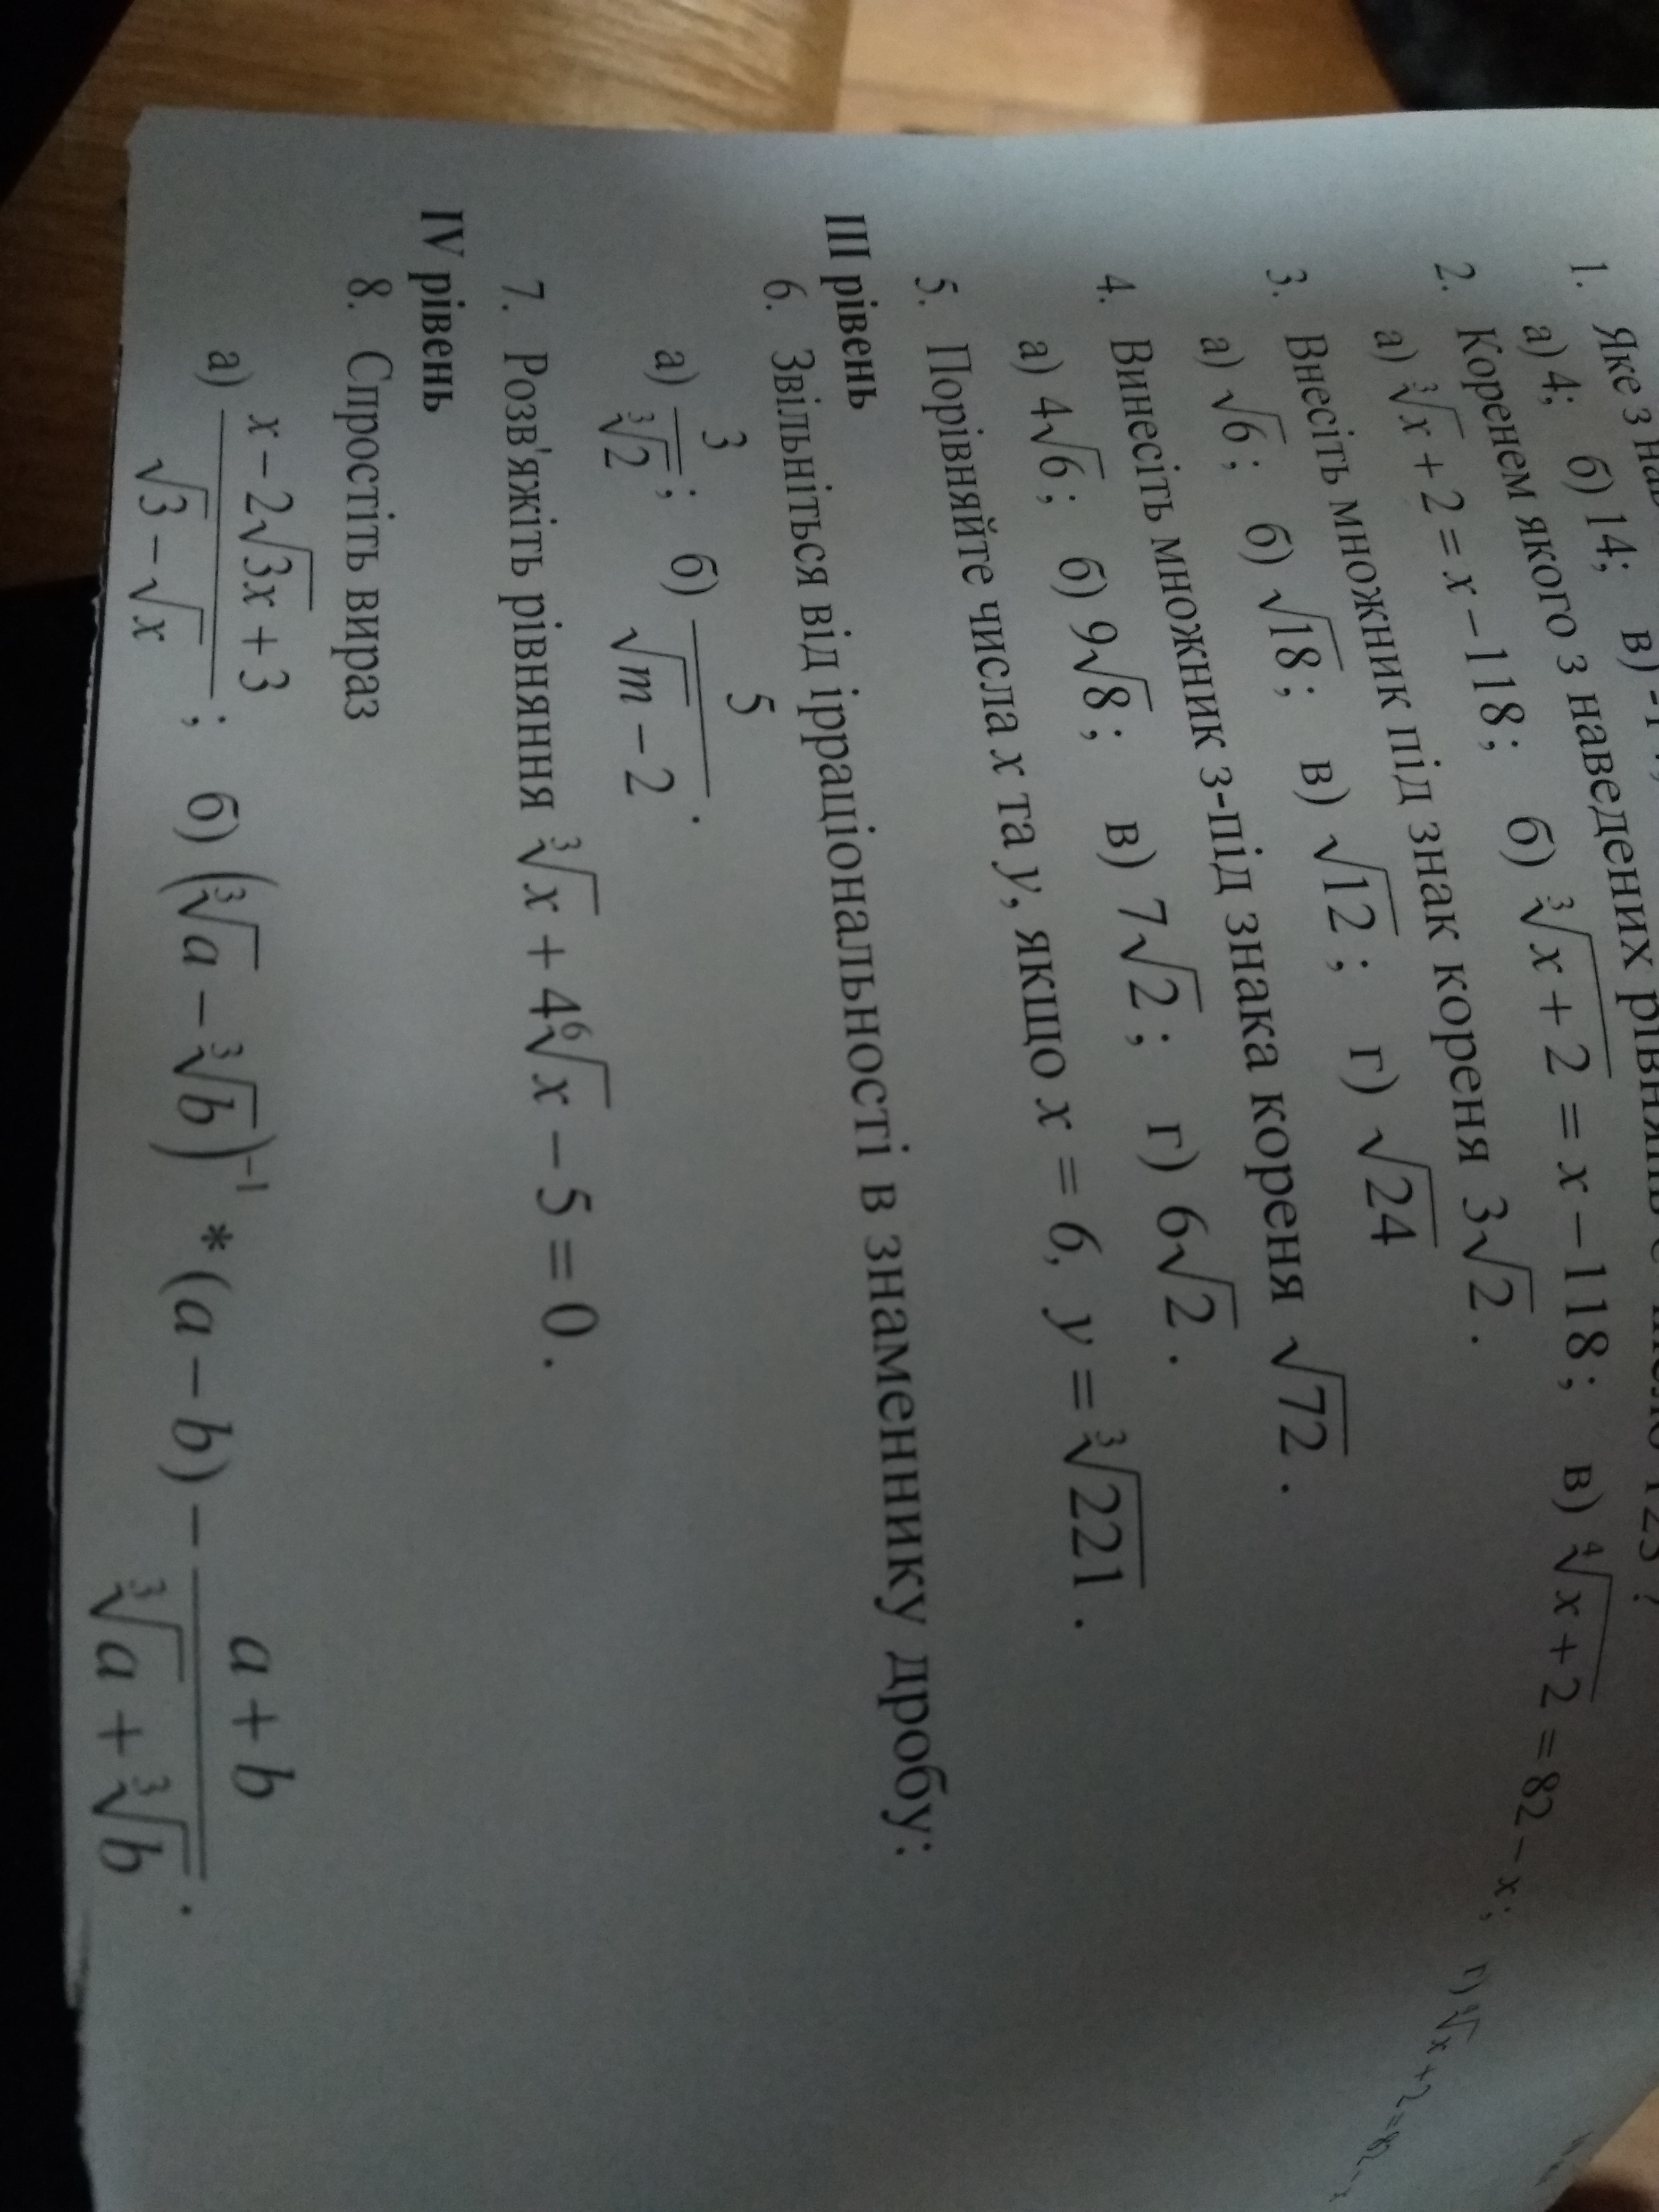 1. Яке з
а) 4; б) 14; в)
2. Коренем якого з наведених рівнянь є число 125?
а) ∛x + 2 = x − 118; б) ∛(x + 2) = x − 118; в) ∜(x + 2) = 82 − x; г)
3. Внесіть множник під знак кореня 3√2.
а) √6; б) √18; в) √12; г) √24
4. Винесіть множник з-під знака кореня √72.
а) 4√6; б) 9√8; в) 7√2; г) 6√2.
5. Порівняйте числа x та y, якщо x = 6, y = ∛221.
III рівень
6. Звільніться від ірраціональності в знаменнику дробу:
а) 3/∛2; б) 5/(√m − 2).
7. Розв'яжіть рівняння ∛x + 4⁶√x − 5 = 0.
IV рівень
8. Спростіть вираз
а) (x − 2√(3x) + 3)/(√3 − √x); б) (∛a − ∛b)⁻¹ * (a − b) − (a + b)/(∛a + ∛b).